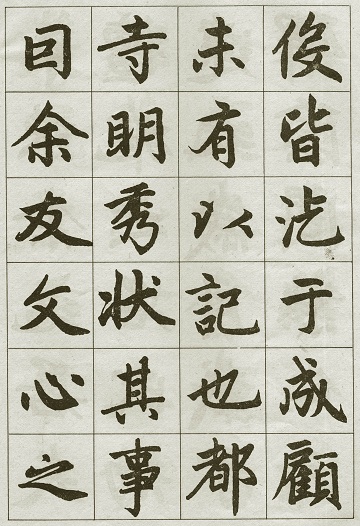 俊皆汔于成顧
未有以記也都
寺明秀狀其事
囙余友文心之